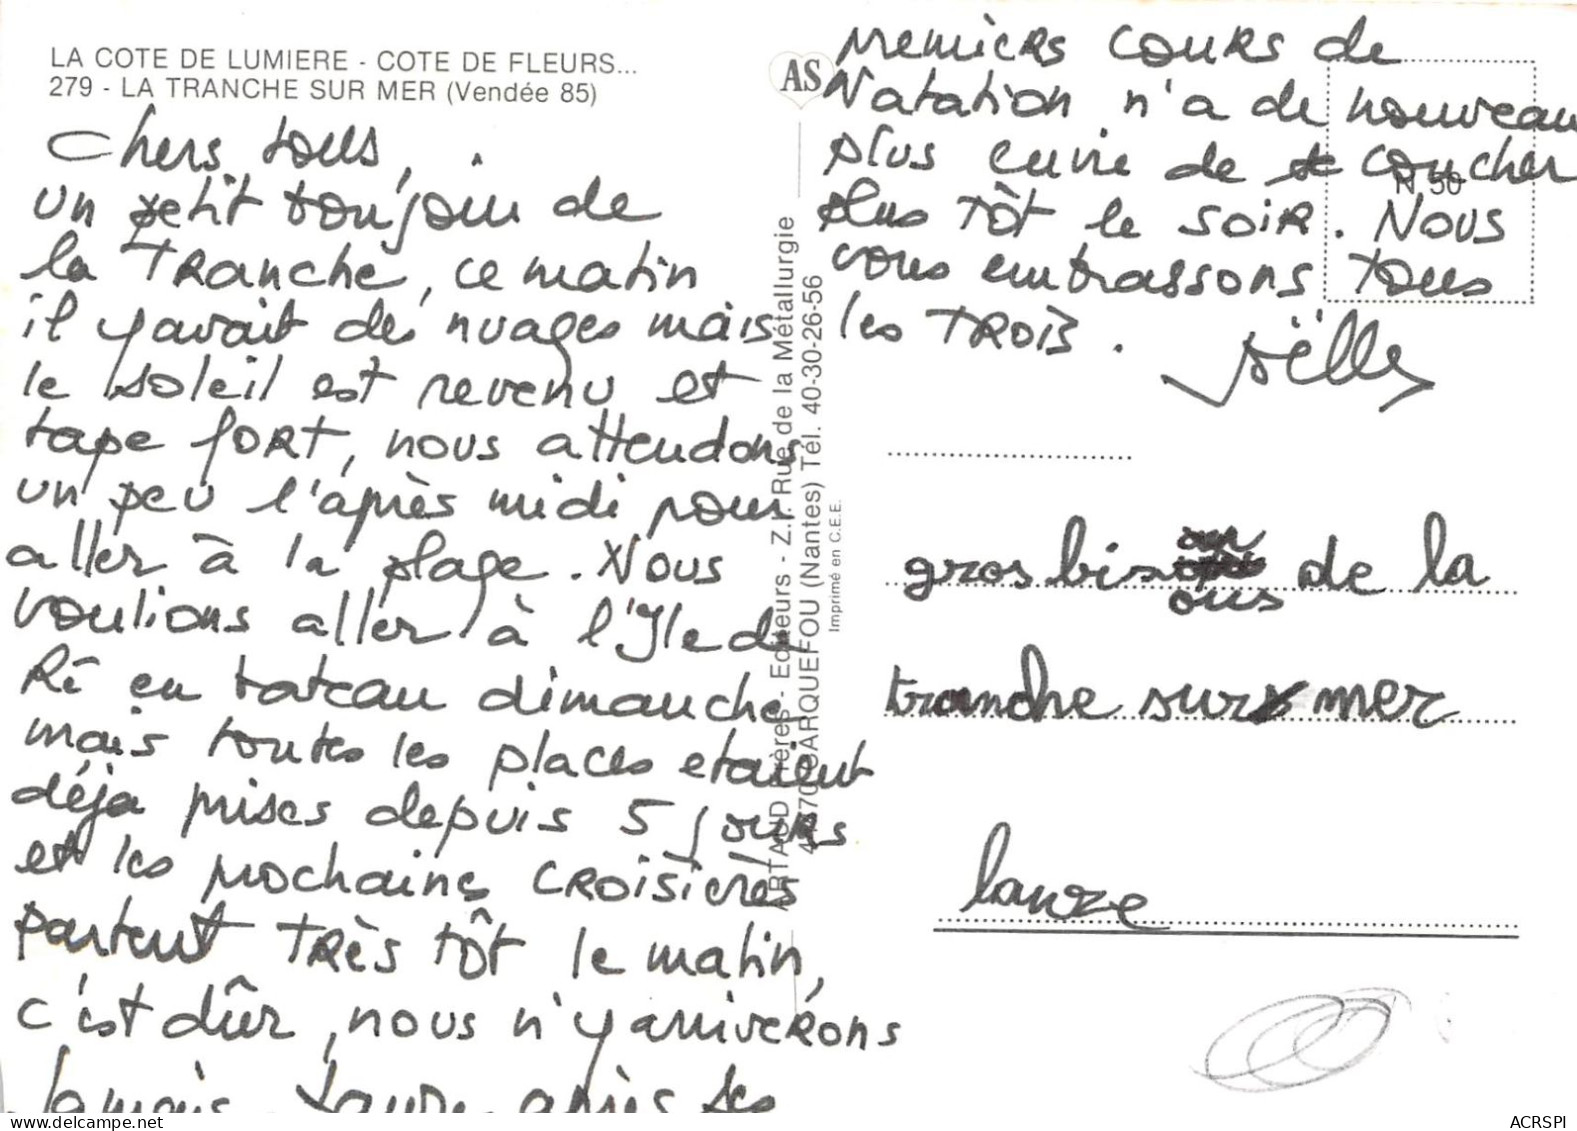 LA COTE DE LUMIERE - COTE DE FLEURS...
279 - LA TRANCHE SUR MER (Vendée 85)
Chers tous,
un petit toujour de
la Tranche, ce matin
il y avait des nuages mais
le soleil est revenu et
tape fort, nous attendons
un peu l'après midi pour
aller à la plage. Nous
voulions aller à l'Ile de
Ré en bateau dimanche
mais toutes les places etaient
déja prises depuis 5 jours
et les prochaines croisières
partent très tôt le matin,
c'est dûr, nous n'y arriverons
Jamais. Laure après ses
premiers cours de
Natation n'a de nouveau
plus envie de se coucher
plus tôt le soir. Nous
vous embrassons tous
les trois.
Joëlle
AS
N 50
ARTAUD Frères - Editeurs - Z.I. Rue de la Métallurgie
44470 CARQUEFOU (Nantes) Tél. 40-30-26-56
Imprimé en C.E.E.
gros bisous de la
tranche sur mer
laure
ACRSPI